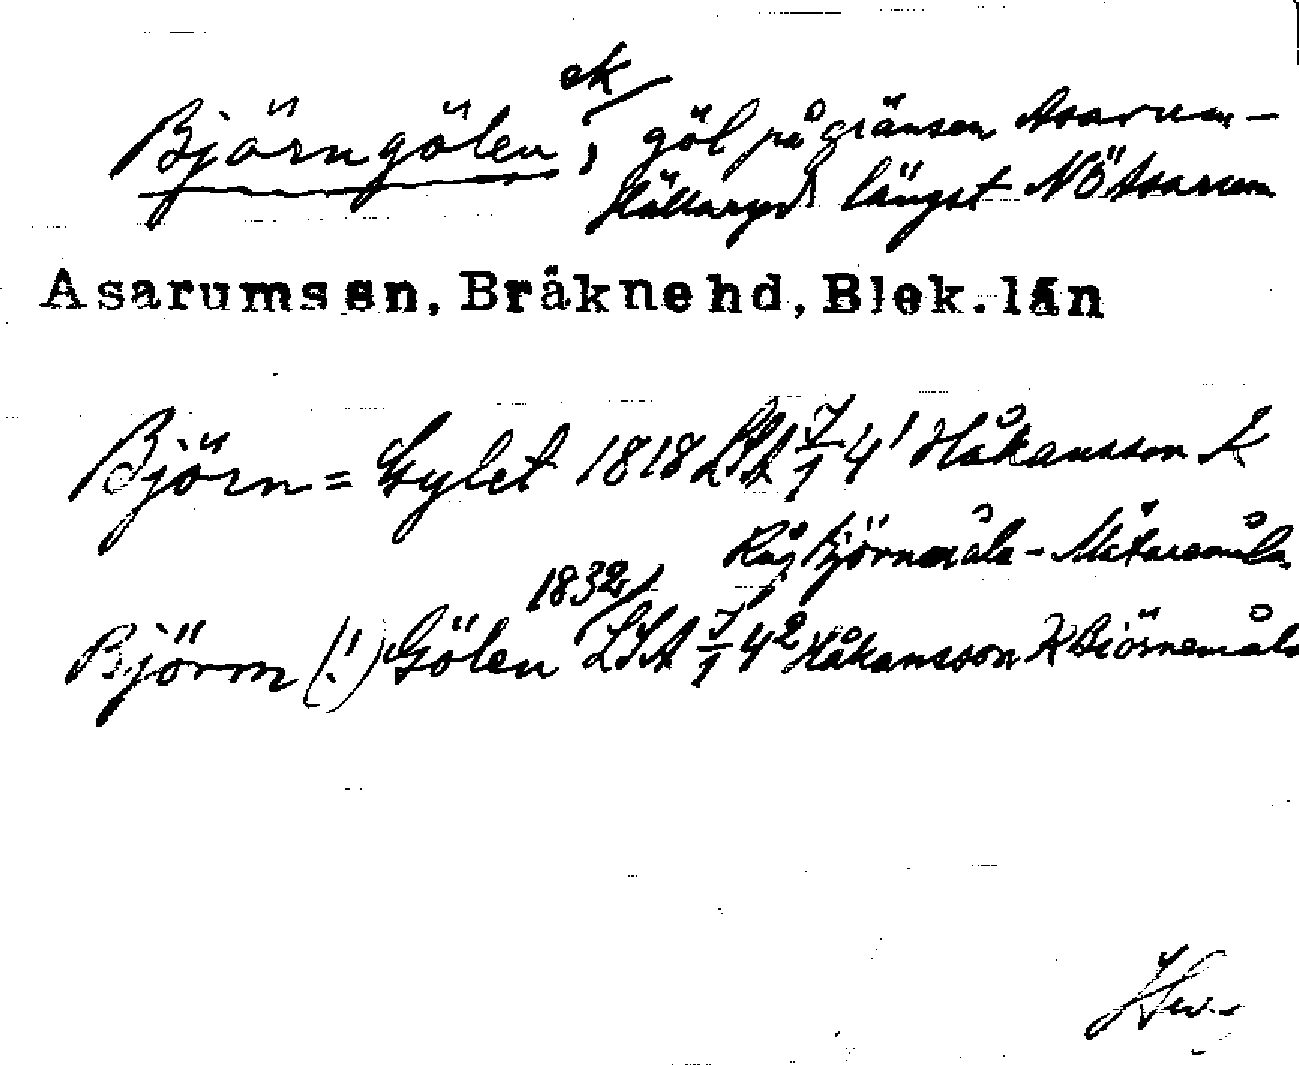 ek
Björngölen, göl på gränsen Asarum-
Hällaryd längst NÖ Asarum
Asarums sn, Bräkne hd, Blek. län
Björn = Gylet 1818 LSA 7/1 4¹ Håkansson K
Rå Björnmåla - Mataremåla
1832
Björm (!) Gölen LSA 7/1 4² Håkansson K Biörnemåla